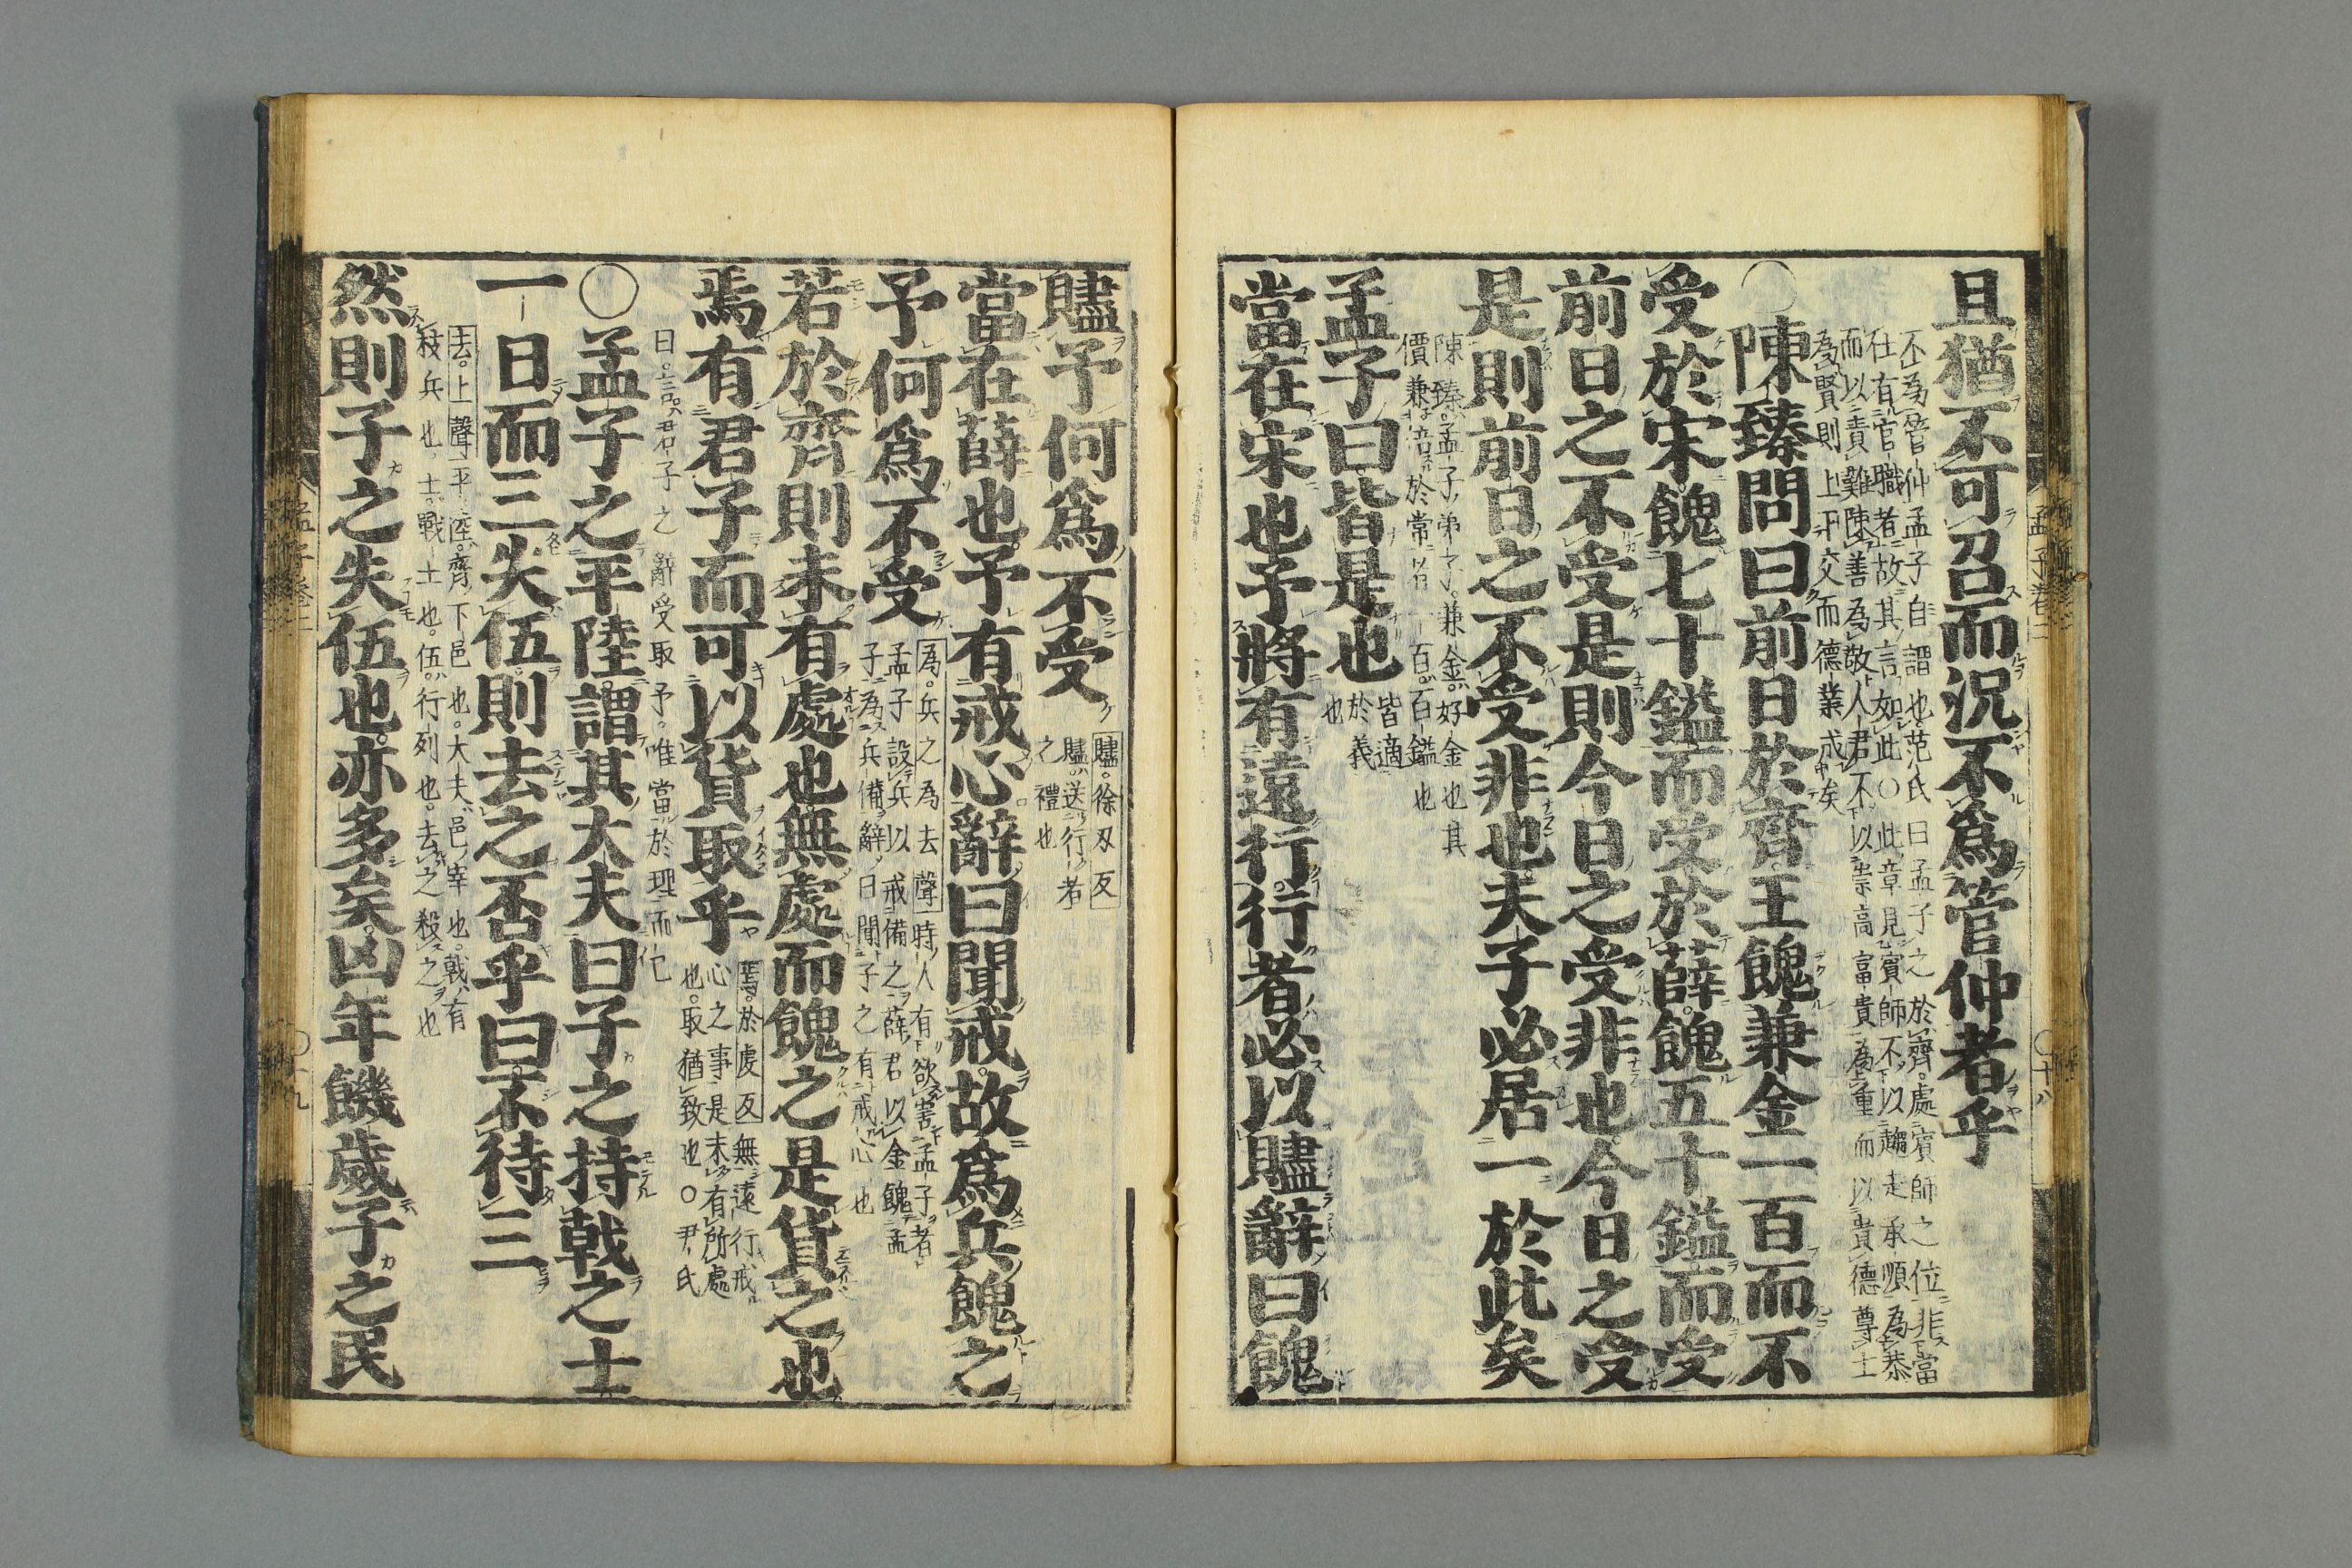 且猶不可召而況不爲管仲者乎
不為管仲孟子自謂也范氏曰孟子之於齊處賓師之位非當
仕有官職者故其言如此○此章見賓師不以趨走承順為恭
而以責難陳善為敬人君不以崇高富貴為重而以貴德尊士
為賢則上下交而德業成矣
○陳臻問曰前日於齊王餽兼金一百而不
受於宋餽七十鎰而受於薛餽五十鎰而受
前日之不受是則今日之受非也今日之受
是則前日之不受非也夫子必居一於此矣
陳臻孟子弟子兼金好金也其
價兼倍於常者一百百鎰也
孟子曰皆是也
皆適
於義
也
當在宋也予將有遠行行者必以贐辭曰餽
孟子卷二
○十八
贐予何爲不受
贐徐刃反
贐送行者
之禮也
當在薛也予有戒心辭曰聞戒故爲兵餽之
予何爲不受
為兵之為去聲時人有欲害孟子者
孟子設兵以戒備之薛君以金餽孟
子為兵備辭曰聞子之有戒心也
若於齊則未有處也無處而餽之是貨之也
焉有君子而可以貨取乎
焉於虔反無遠行戒
心之事是未有所處
也取猶致也○尹氏
曰言君子之辭受取予唯當於理而已
○孟子之平陸謂其大夫曰子之持戟之士
一日而三失伍則去之否乎曰不待三
去上聲平陸齊下邑也大夫邑宰也戟有
枝兵也士戰士也伍行列也去之殺之也
然則子之失伍也亦多矣凶年饑歲子之民
孟子卷二
○十九